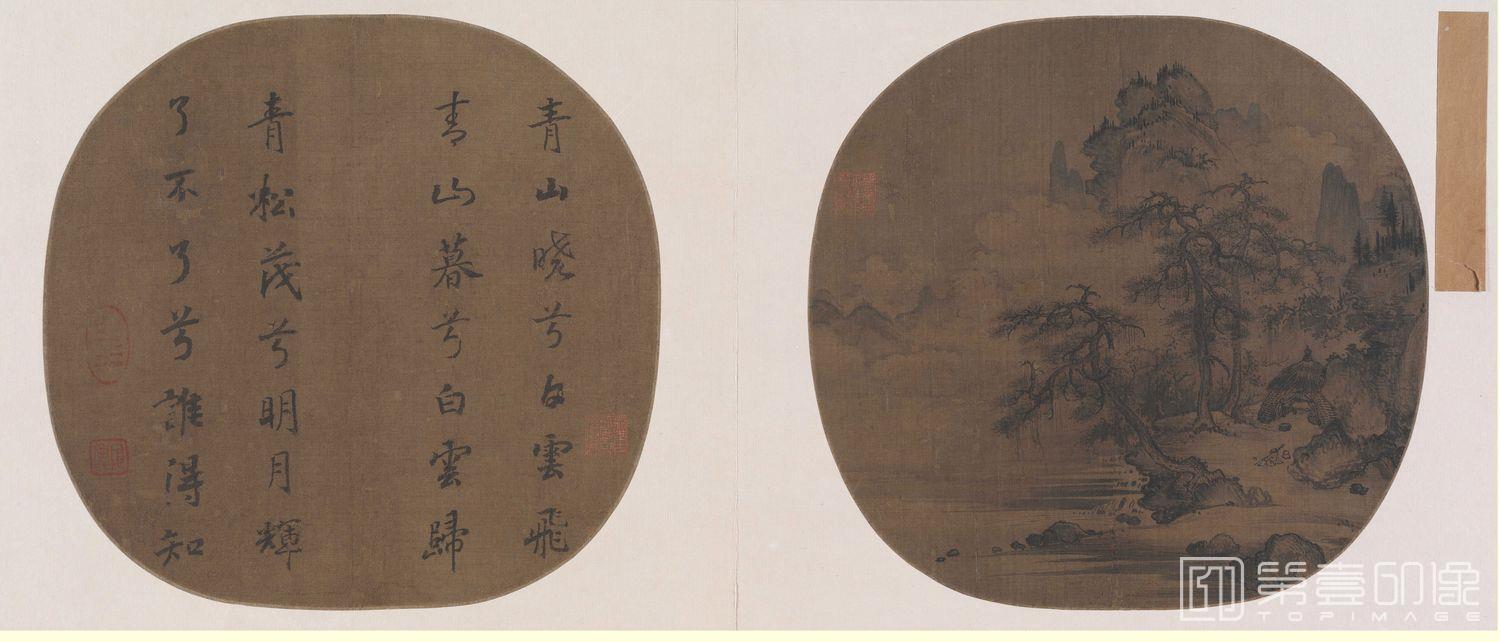 青山曉兮白雲飛
青山暮兮白雲歸
青松茂兮明月輝
了不了兮誰得知
第壹印像
TOPIMAGE